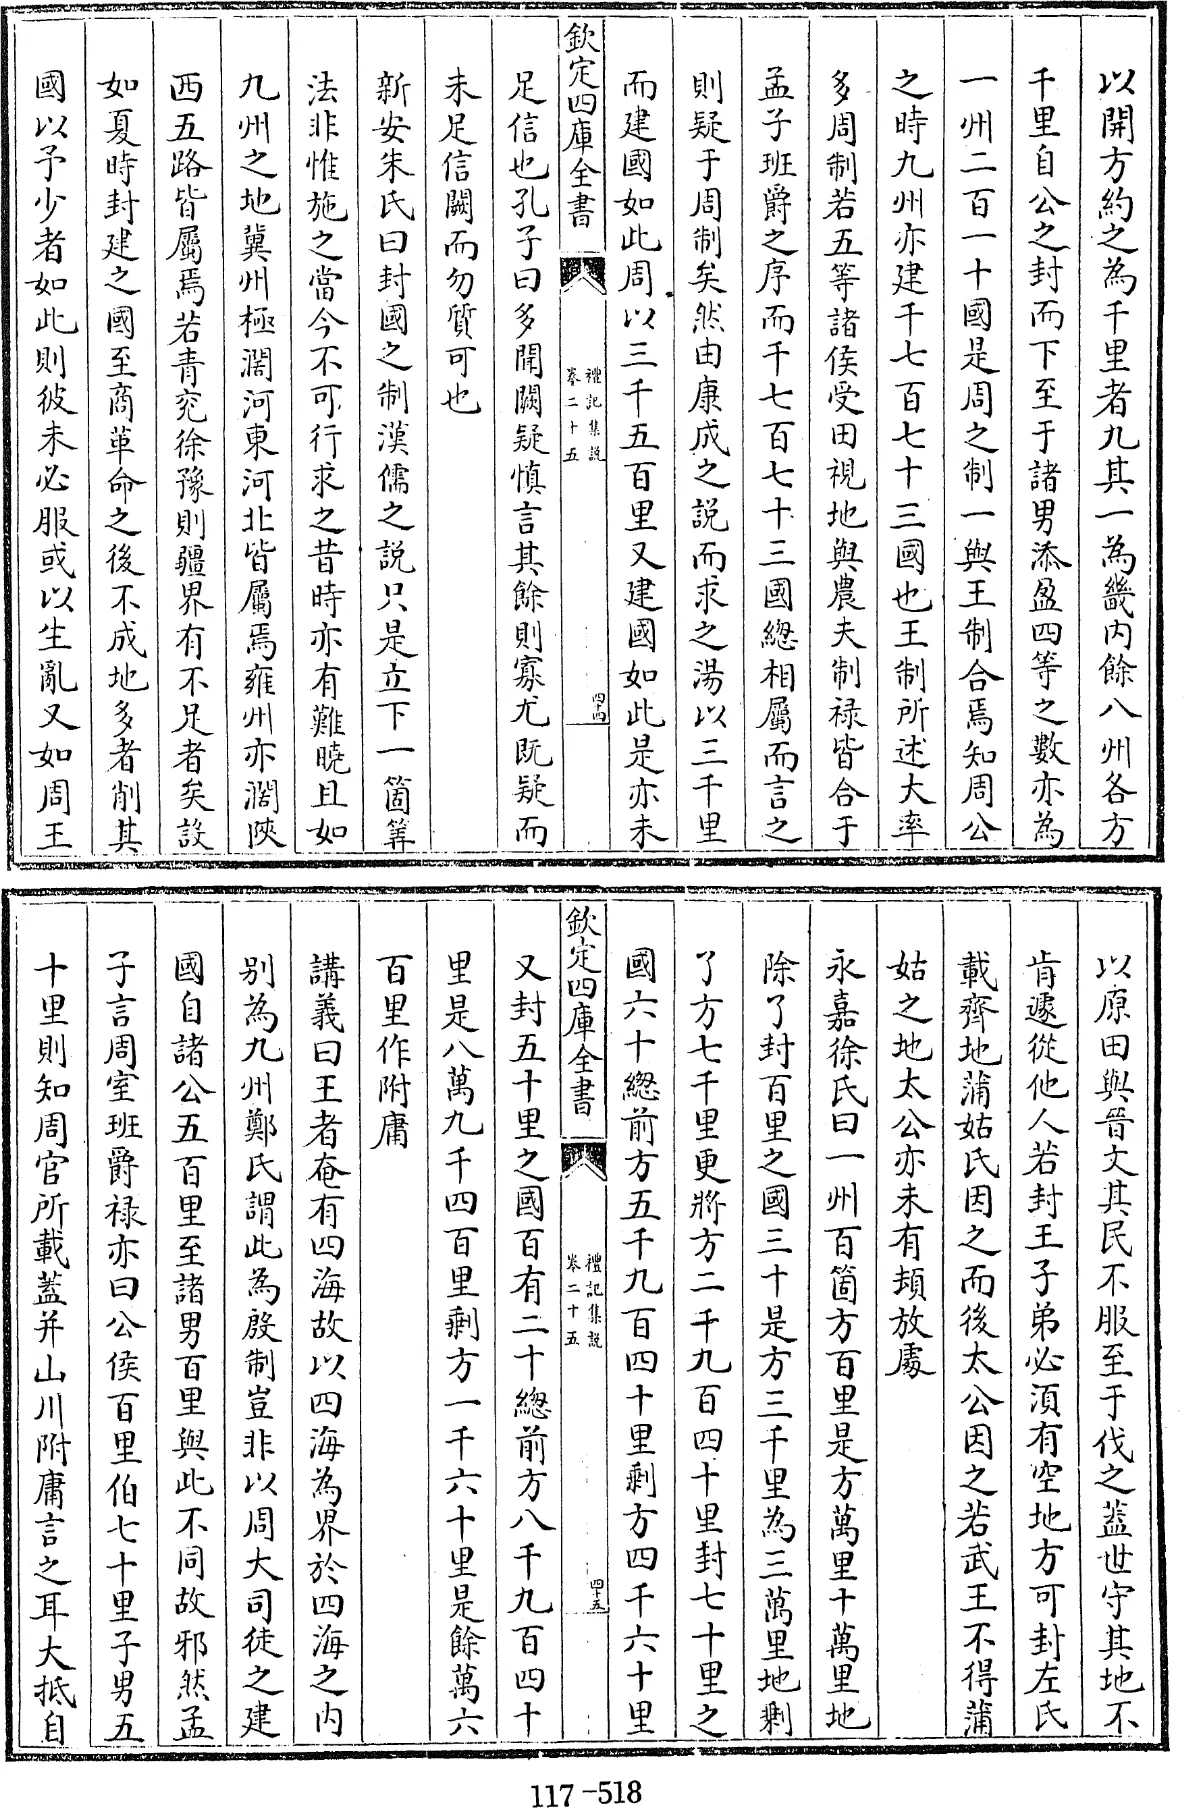 以開方約之為千里者九其一為畿内餘八州各方
千里自公之封而下至于諸男添盈四等之數亦為
一州二百一十國是周之制一與王制合焉知周公
之時九州亦建千七百七十三國也王制所述大率
多周制若五等諸侯受田視地與農夫制禄皆合于
孟子班爵之序而千七百七十三國總相屬而言之
則疑于周制矣然由康成之説而求之湯以三千里
而建國如此周以三千五百里又建國如此是亦未
欽定四庫全書
禮記集説
卷二十五
四十四
足信也孔子曰多聞闕疑慎言其餘則寡尤既疑而
未足信闕而勿質可也
新安朱氏曰封國之制漢儒之説只是立下一箇筭
法非惟施之當今不可行求之昔時亦有難曉且如
九州之地冀州極濶河東河北皆屬焉雍州亦濶陜
西五路皆屬焉若青兖徐豫則疆界有不足者矣設
如夏時封建之國至商革命之後不成地多者削其
國以予少者如此則彼未必服或以生亂又如周王
以原田與晉文其民不服至于伐之蓋世守其地不
肯遽從他人若封王子弟必須有空地方可封左氏
載齊地蒲姑氏因之而後太公因之若武王不得蒲
姑之地太公亦未有頓放處
永嘉徐氏曰一州百箇方百里是方萬里十萬里地
除了封百里之國三十是方三千里為三萬里地剩
了方七千里更將方二千九百四十里封七十里之
國六十總前方五千九百四十里剩方四千六十里
欽定四庫全書
禮記集説
卷二十五
四十五
又封五十里之國百有二十總前方八千九百四十
里是八萬九千四百里剩方一千六十里是餘萬六
百里作附庸
講義曰王者奄有四海故以四海為界於四海之内
别為九州鄭氏謂此為殷制豈非以周大司徒之建
國自諸公五百里至諸男百里與此不同故邪然孟
子言周室班爵禄亦曰公侯百里伯七十里子男五
十里則知周官所載蓋并山川附庸言之耳大抵自
117-518